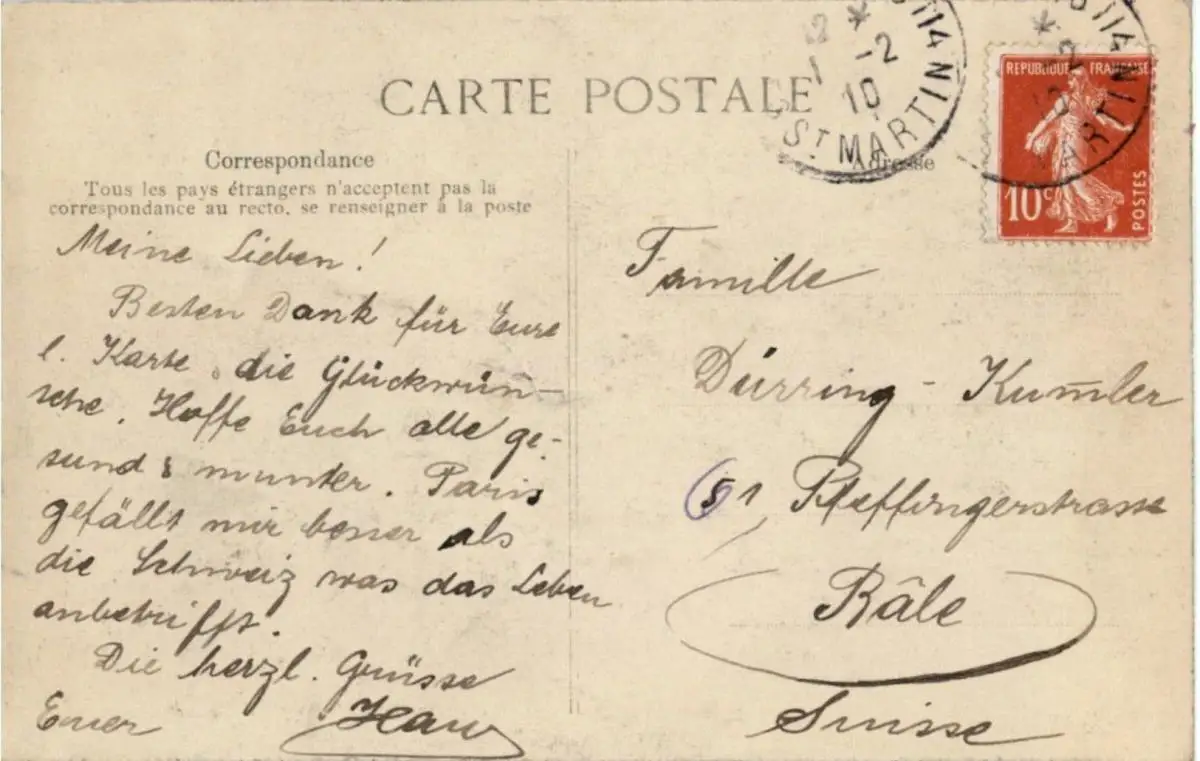 CARTE POSTALE
Correspondance
Tous les pays étrangers n'acceptent pas la
correspondance au recto, se renseigner à la poste
Meine Lieben!
Besten Dank für Eure
l. Karte, die Glückwün-
sche. Hoffe Euch alle ge-
sund & munter. Paris
gefällt mir besser als
die Schweiz was das Leben
anbetrifft.
Die herzl. Grüsse
Euer
Adresse
Famille
Dürring - Kum̄ler
51 Pfeffingerstrasse
Bâle
Suisse
1 -2
10
ST MARTIN
REPUBLIQUE FRANÇAISE
10c
POSTES